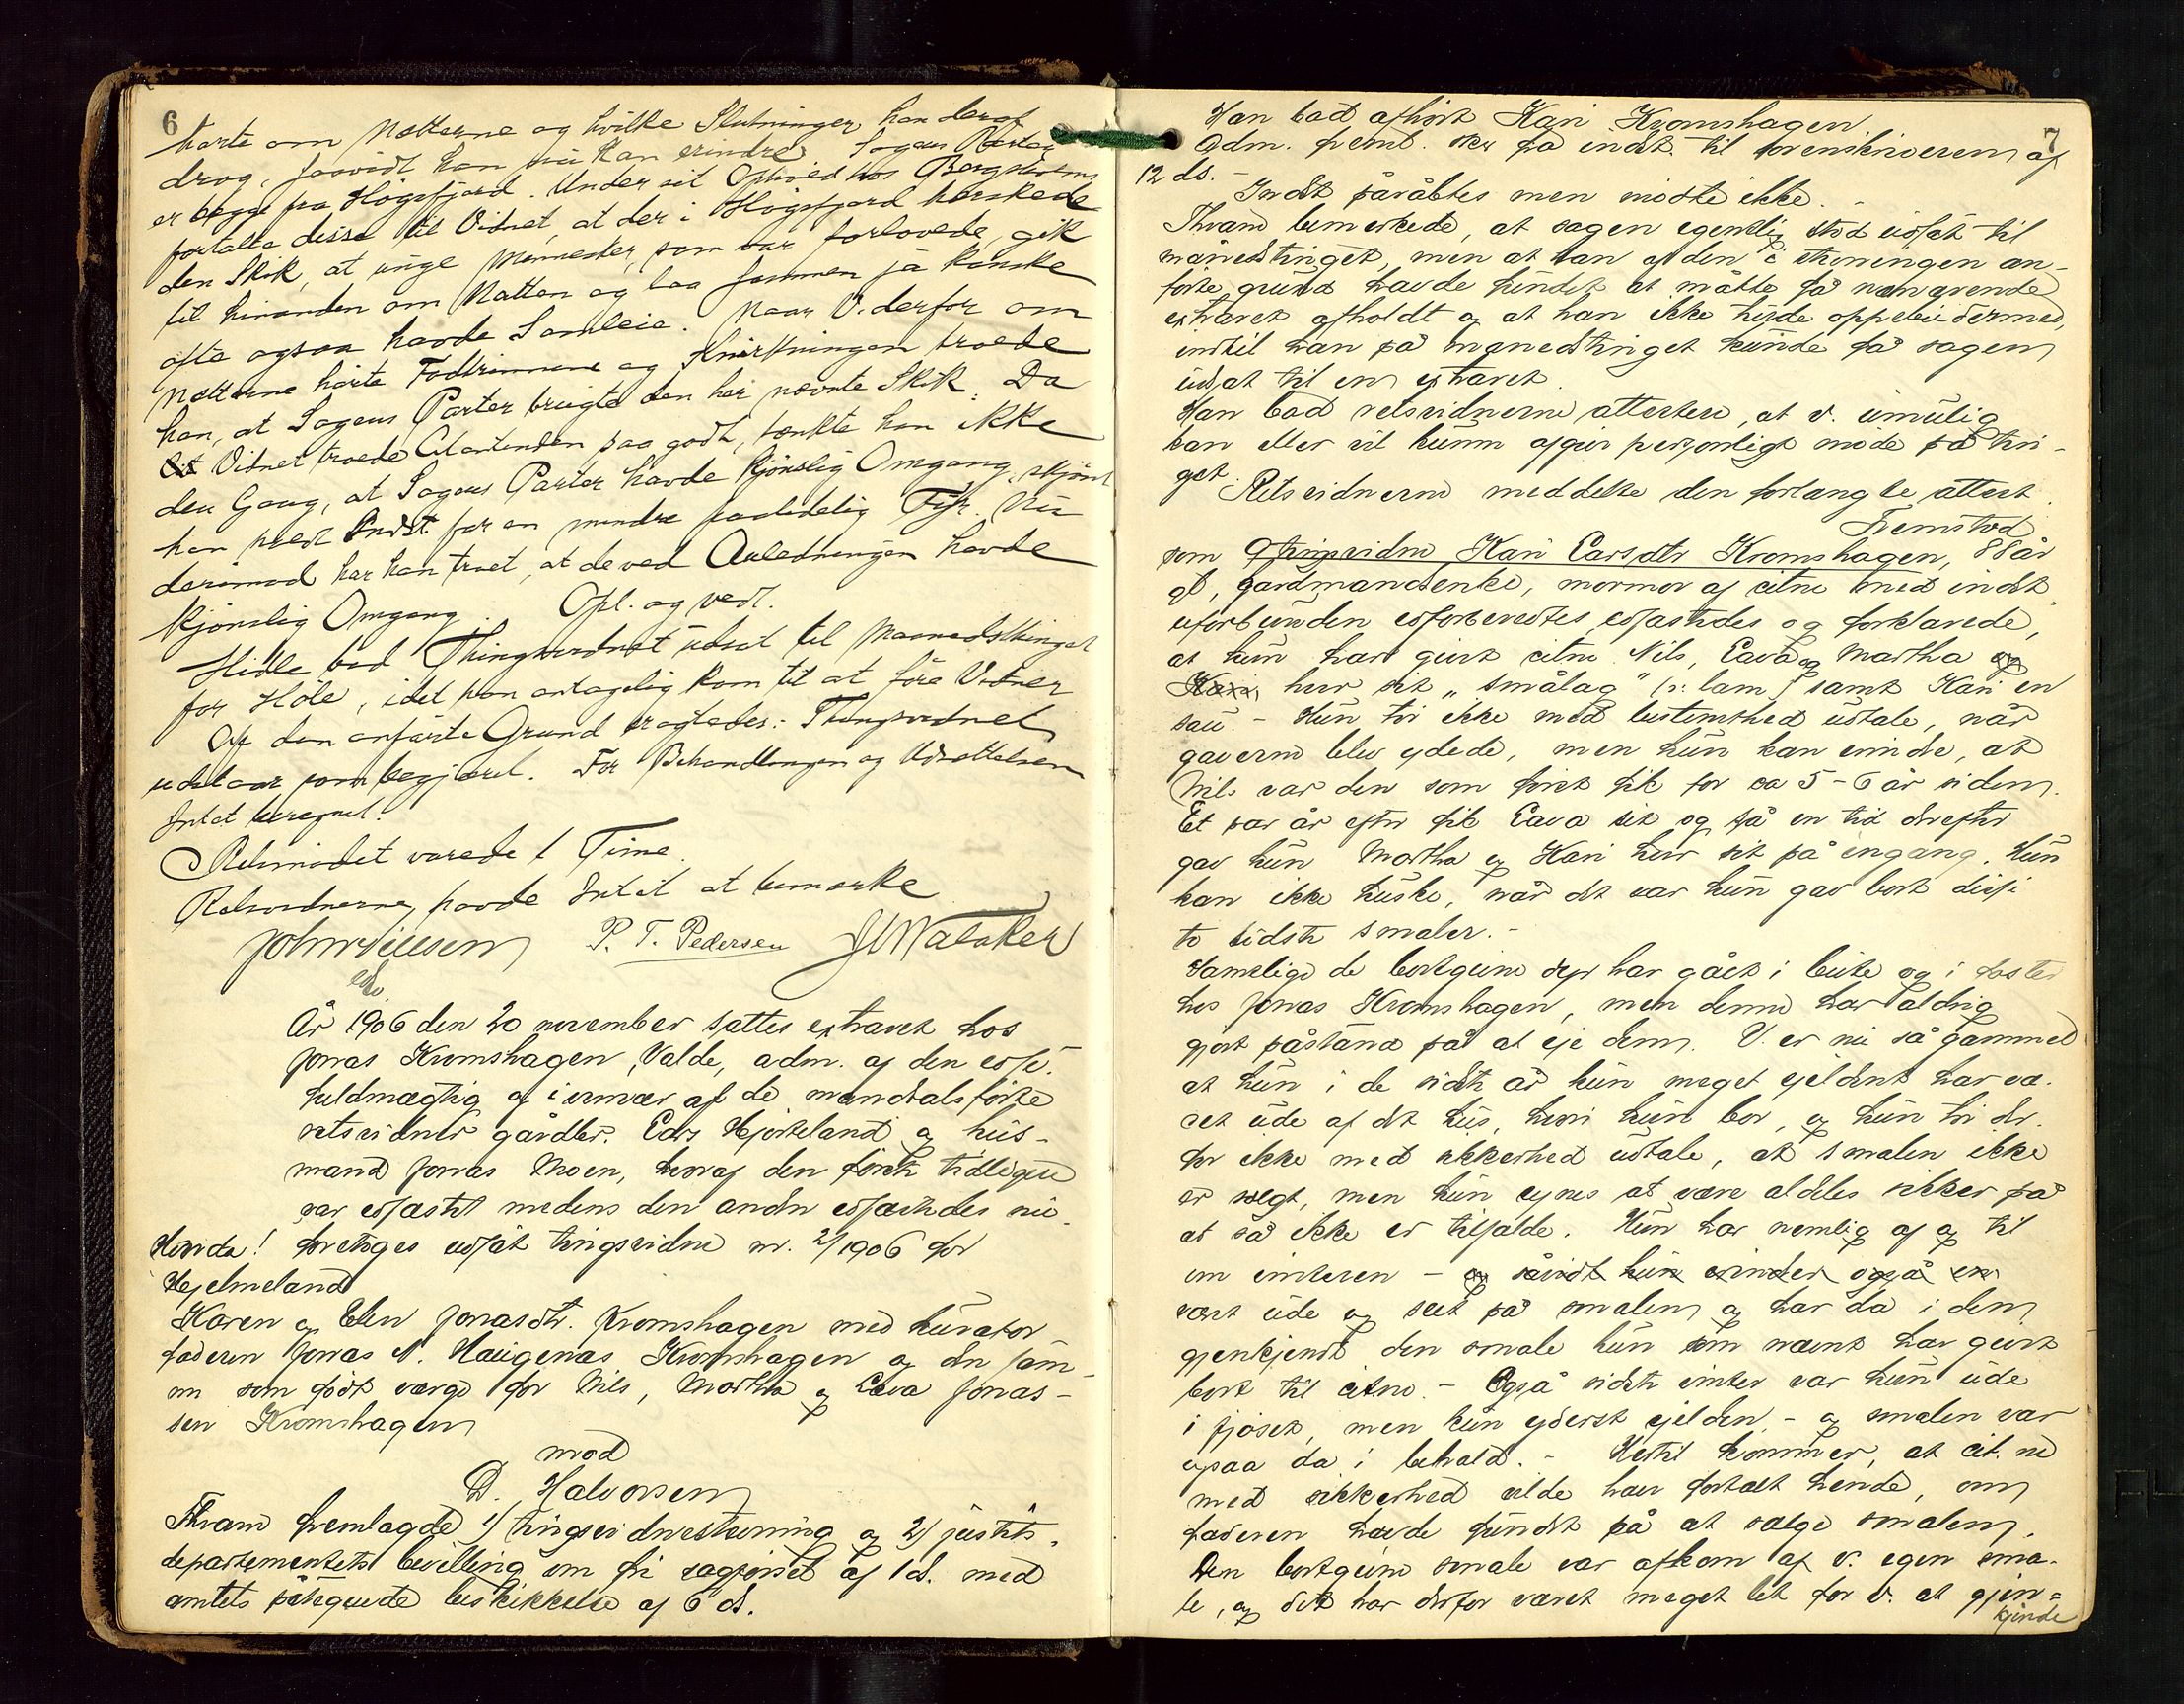 6
hørte om Nætterne og hvilke Slutninger han deraf
drog, saavidt han nu kan erindre. Sagens Parter
er begge fra Høgsfjord. Under sit Ophold hos Bergstøls
fortalte disse til Vidnet, at der i Høgsfjord herskede
den Skik, at unge Mennesker, som var forlovede, gik
til hinanden om Natten og laa sammen ja kanske
ofte ogsaa havde Samleie. Naar V. derfor om
Nætterne hørte Fodtrinnene og Knirkningen troede
han, at Sagens Parter brugte den her nævnte Skik. Da
Vidnet troede Citantinden saa godt, tænkte han ikke
den Gang, at Sagens Parter havde kjønslig Omgang, skjønt
han holdt Indst. for en mindre paalidelig Fyr. Nu
derimod har han troet, at de ved Anledningen havde
kjønslig Omgang. Opl. og vedt.
Hidle bad Thingsvidnet udsat til Maanedsthinget
for Høle, idet han antagelig kom til at føre Vidner
Af den anførte Grund eragtedes: Thingsvidnet
udstaar som begjæret. For Behandlingen og Udsættelsen
Intet beregnet.
Retsmødet varede 1 Time.
Retsvidnerne havde Intet at bemærke
P. T. Pedersen
År 1906 den 20 november sattes extraret hos
Jonas Kromshagen, Valde, adm. af den edsv.
fuldmægtig og i overvær af de mandtalsførte
retsvidner gårdbr. Lars Hjorteland og hus-
mand Jonas Moen, hvoraf den første tidligere
var edfæstet medens den anden edfæstedes nu.
Hvorda! foretoges udsat tingsvidne nr. 2/1906 for
Hjelmeland
Karen og Elen Jonasdtr. Kromshagen med kurator
faderen Jonas N. Haugenæs Kromshagen og den sam-
me som født værge for Nils, Martha og Lava Jonas-
sen Kromshagen
mod
D. Halvorsen
Thrane fremlagde 1) tingsvidnestevning og 2) justits-
departementets bevilling om fri sagførsel af 1 ds. med
amtets påtegnede beskikkelse af 6 ds.
7
Han bad afhørt Kari Kromshagen.
Adm. freml. skr fra indst. til sorenskriveren af
12 ds.-
Indst påråbtes men mødte ikke.-
Thrane bemerkede, at sagen egentlig stod udsat til
månedstinget, men at han af den i stevningen an-
førte grund havde fundet at måtte få nærværende
extraret afholdt og at han ikke turde oppebie dermed,
indtil han på månedstinget kunde få sagen
udsat til en extraret.
Han bad retsvidnerne attestere, at v. umulig
kan eller vil kunne afgive personligt møde på tin-
get. Retsvidnerne meddelte den forlangte attest.
Fremstod
som 9 tingsvidne Kari Larsdtr Kromshagen, 88 år
gl, gårdmandsenke, mormor af citne med indst
uforbunden edsforberedtes edfæstedes og forklarede,
at hun har givet citne Nils, Lava og Martha
hver sit „smålag" (ɔ: lam) samt Kari en
sau - Hun tør ikke med bestemthed udtale, når
gaverne blev ydede, men hun kan erindre, at
Nils var den som først fik for ca 5-6 år siden.
Et par år efter fik Lava sit og så en tid derefter
gav hun Martha og Kari hver sit på engang. Hun
kan ikke huske, når det var hun gav bort disse
to sidste smaler.-
Samtlige de bortgivne dyr har gået i beite og i foster
hos Jonas Kromshagen, men denne har aldrig
gjort påstand på at eje dem. V. er nu så gammel
at hun i de sidste år kun meget sjeldent har væ-
ret ude af det hus, hvori hun bor, og hun tør der-
for ikke med sikkerhed udtale, at smalen ikke
er solgt, men hun synes at være aldeles sikker på
at så ikke er tilfælde. Hun har nemlig af og til
om vinteren - og såvidt hun erindrer også en
vært ude og seet på smalen og har da i dem
gjenkjendt den smale hun som nævnt har givet
bort til citne.- Også sidste vinter var hun ude
i fjøset, men kun yderst sjelden, - og smalen var
ogsaa da i behold.- Hertil kommer, at cit.ne
med sikkerhed vilde have fortalt hende, om
faderen havde fundet på at sælge smalen.
Den bortgivne smale var afkom af v. egen sma-
le, og det har derfor været meget let for v. at gjen-
kjende